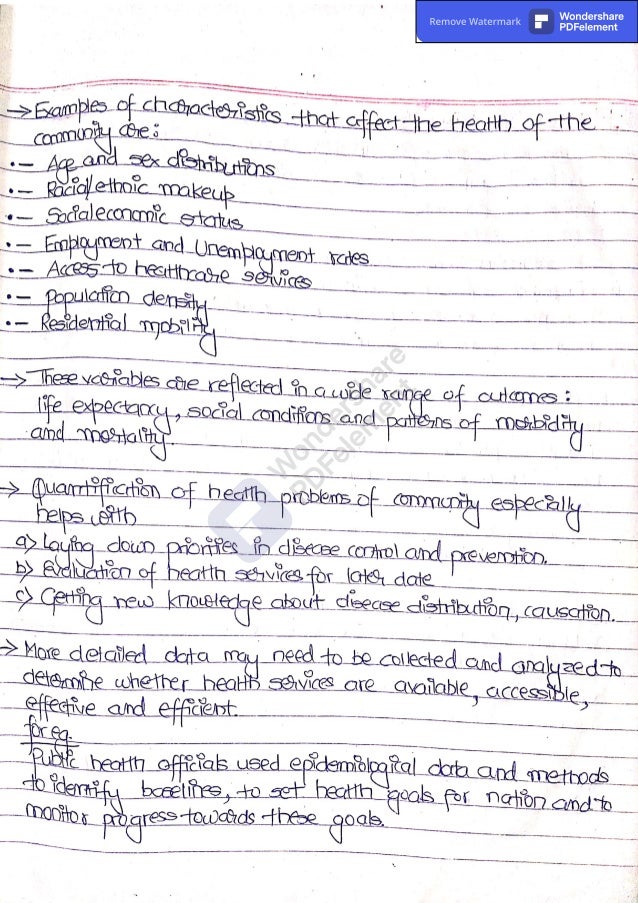 Remove Watermark
Wondershare
PDFelement
→ Examples of characteristics that affect the health of the
community are:
• – Age and sex distributions
• – Racial/ethnic makeup
• – Socialeconomic status
• – Employment and Unemployment rates
• – Access to healthcare services
• – Population density
• – Residential mobility
→ These variables are reflected in a wide range of outcomes:
life expectancy, social conditions and patterns of morbidity
and mortality
→ Quantification of health problems of community especially
helps with
a) Laying down priorities in disease control and prevention.
b) Evaluation of health services for later date
c) Getting new knowledge about disease distribution, causation.
→ More detailed data may need to be collected and analyzed to
determine whether health services are available, accessible,
effective and efficient.
for eg.
Public health officials used epidemiological data and methods
to identify baselines, to set health goals for nation and to
monitor progress towards these goals.
Wondershare
PDFelement